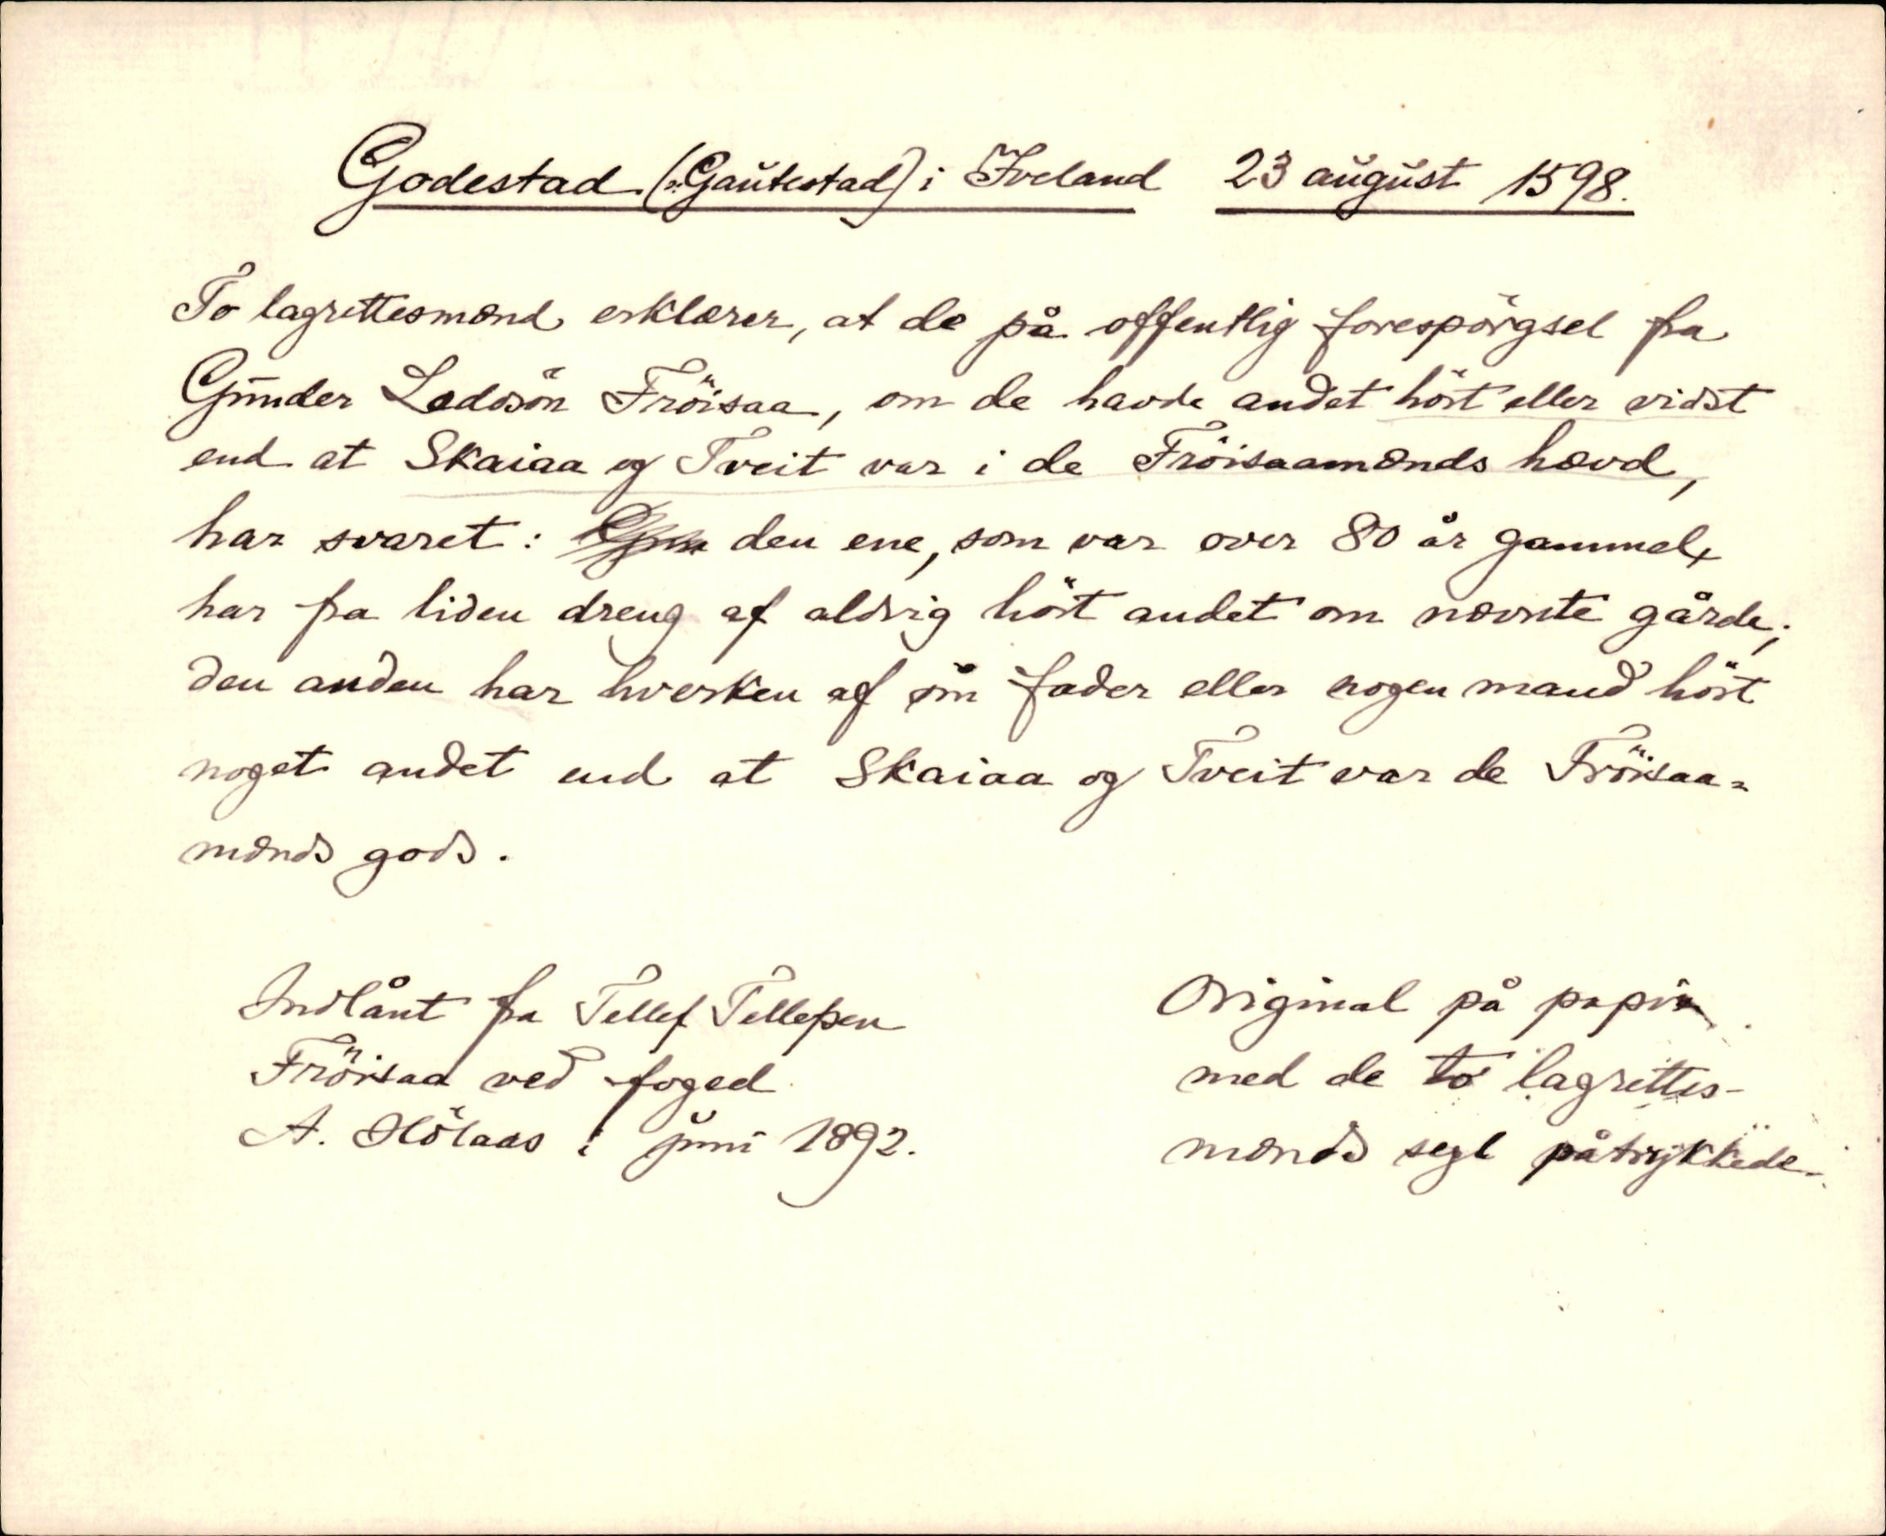 Godestad (ɔ: Gautestad) i Iveland 23 august 1598.
To lagrettesmænd erklærer, at de på offentlig forespörgsel fra
Gunder Ledosön Fröisaa, om de havde andet hört eller vidst
end at Skaiaa og Tveit var i de Fröisaamænds hævd,
har svaret: den ene, som var over 80 år gammel,
har fra liden dreng af aldrig hört andet om nævnte gårde;
den anden har hverken af sin fader eller nogen mand hört
noget andet end at Skaiaa og Tveit var de Fröisaa-
mænds gods.
Indlånt fra Tellef Tellefsen
Fröisaa ved foged
A. Hölaas i juni 1892.
Original på papir
med de to lagrettes-
mænds segl påtrykkede.